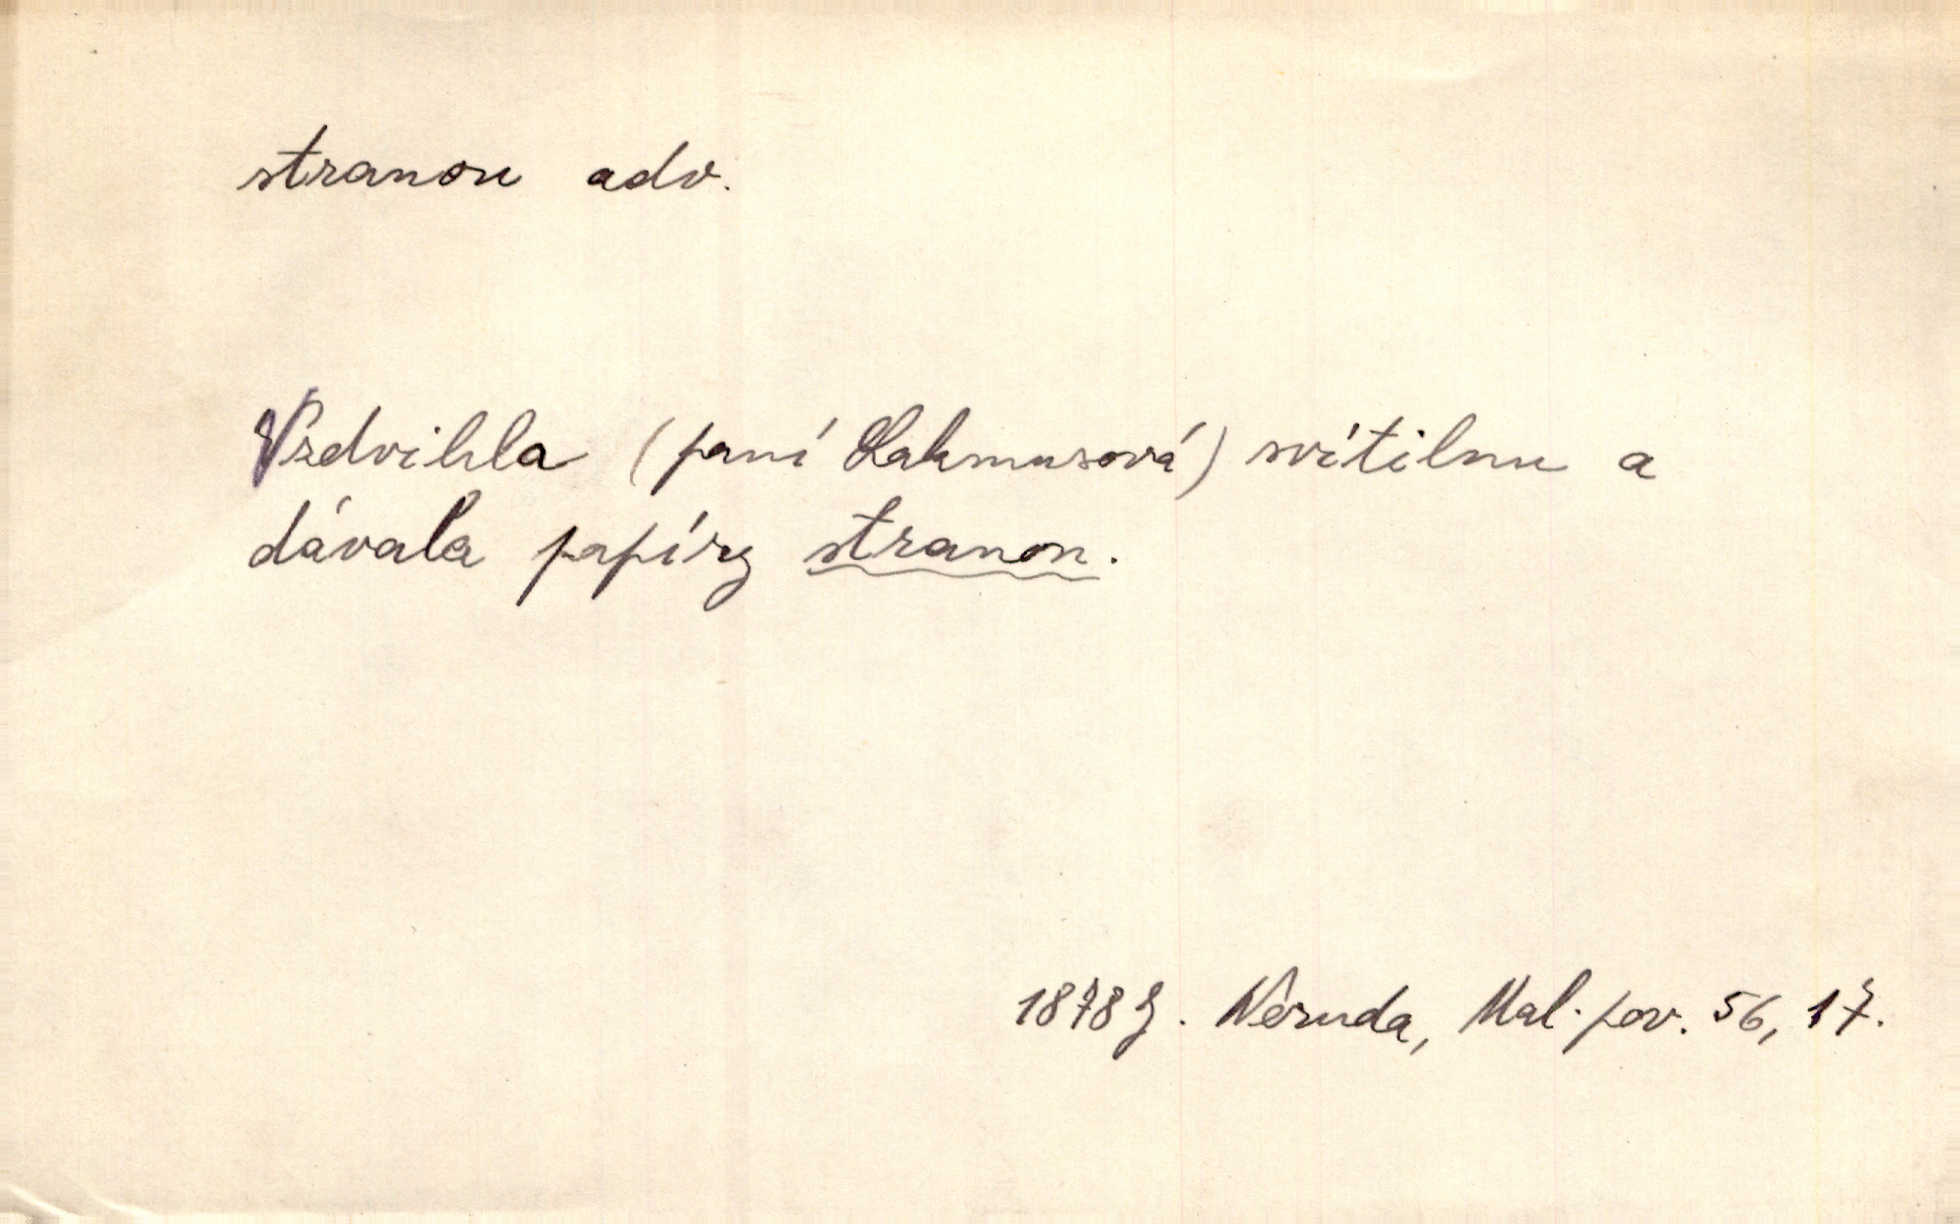 stranou adv.
Vzdvihla (paní Lakmusová) svítilnu a
dávala papíry stranou.
1878 J. Neruda, Mal. pov. 56, 17.